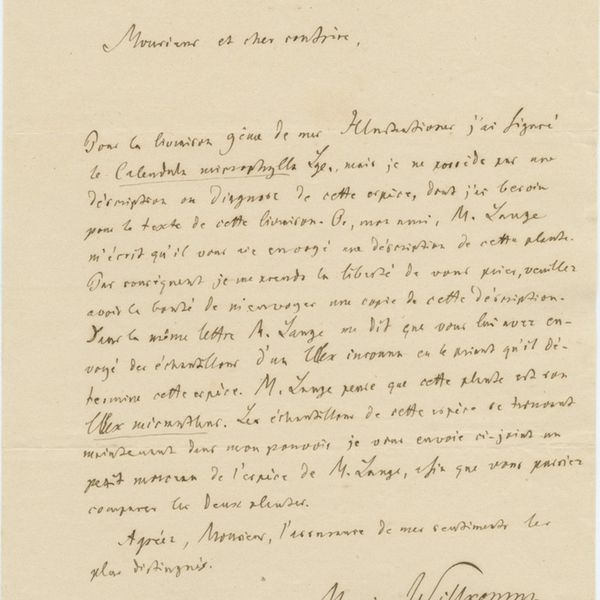 Monsieur et cher confrère,
Pour la livraison 9ème de mes Illustrationes j'ai figuré
le Calendula microphylla Lge, mais je ne possède pas une
déscription ou diagnose de cette espèce, dont j'ai besoin
pour le texte de cette livraison. Or, mon ami, M. Lange
m'écrit qu'il vous aie envoyé une déscription de cette plante.
Par conséquent je me prends la liberté de vous prier, veuillez
avoir la bonté de m'envoyer une copie de cette déscription.
Dans la même lettre M. Lange me dit que vous lui avez en-
voyé des échantillons d'un Ulex inconnu en le priant qu'il dé-
termine cette espèce. M. Lange pense que cette plante est son
Ulex micranthus. Les échantillons de cette espèce se trouvant
maintenant dans mon pouvoir je vous envoie ci-joint un
petit morceau de l'espèce de M. Lange, afin que vous puissiez
comparer les deux plantes.
Agréez, Monsieur, l'assurance de mes sentiments les
plus distingués.
Willkomm